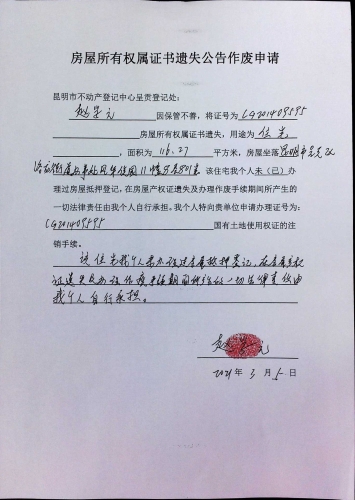 房屋所有权属证书遗失公告作废申请
昆明市不动产登记中心呈贡登记处:
因保管不善,将证号为CG201409595
房屋所有权属证书遗失,用途为住宅
,面积为116.27平方米,房屋坐落昆明市呈贡区
11幢 801室 该住宅我个人未(已)办
理过房屋抵押登记,在房屋产权证遗失及办理作废手续期间所产生的
一切法律责任由我个人自行承担。我个人特向贵单位申请办理证号为:
CG201409595 国有土地使用权证的注
销手续。
该住宅我个人未办理过房屋抵押登记,在房屋产权
证遗失及办理作废手续期间所产生的一切法律责任由
我个人自行承担。
2021年3月5日